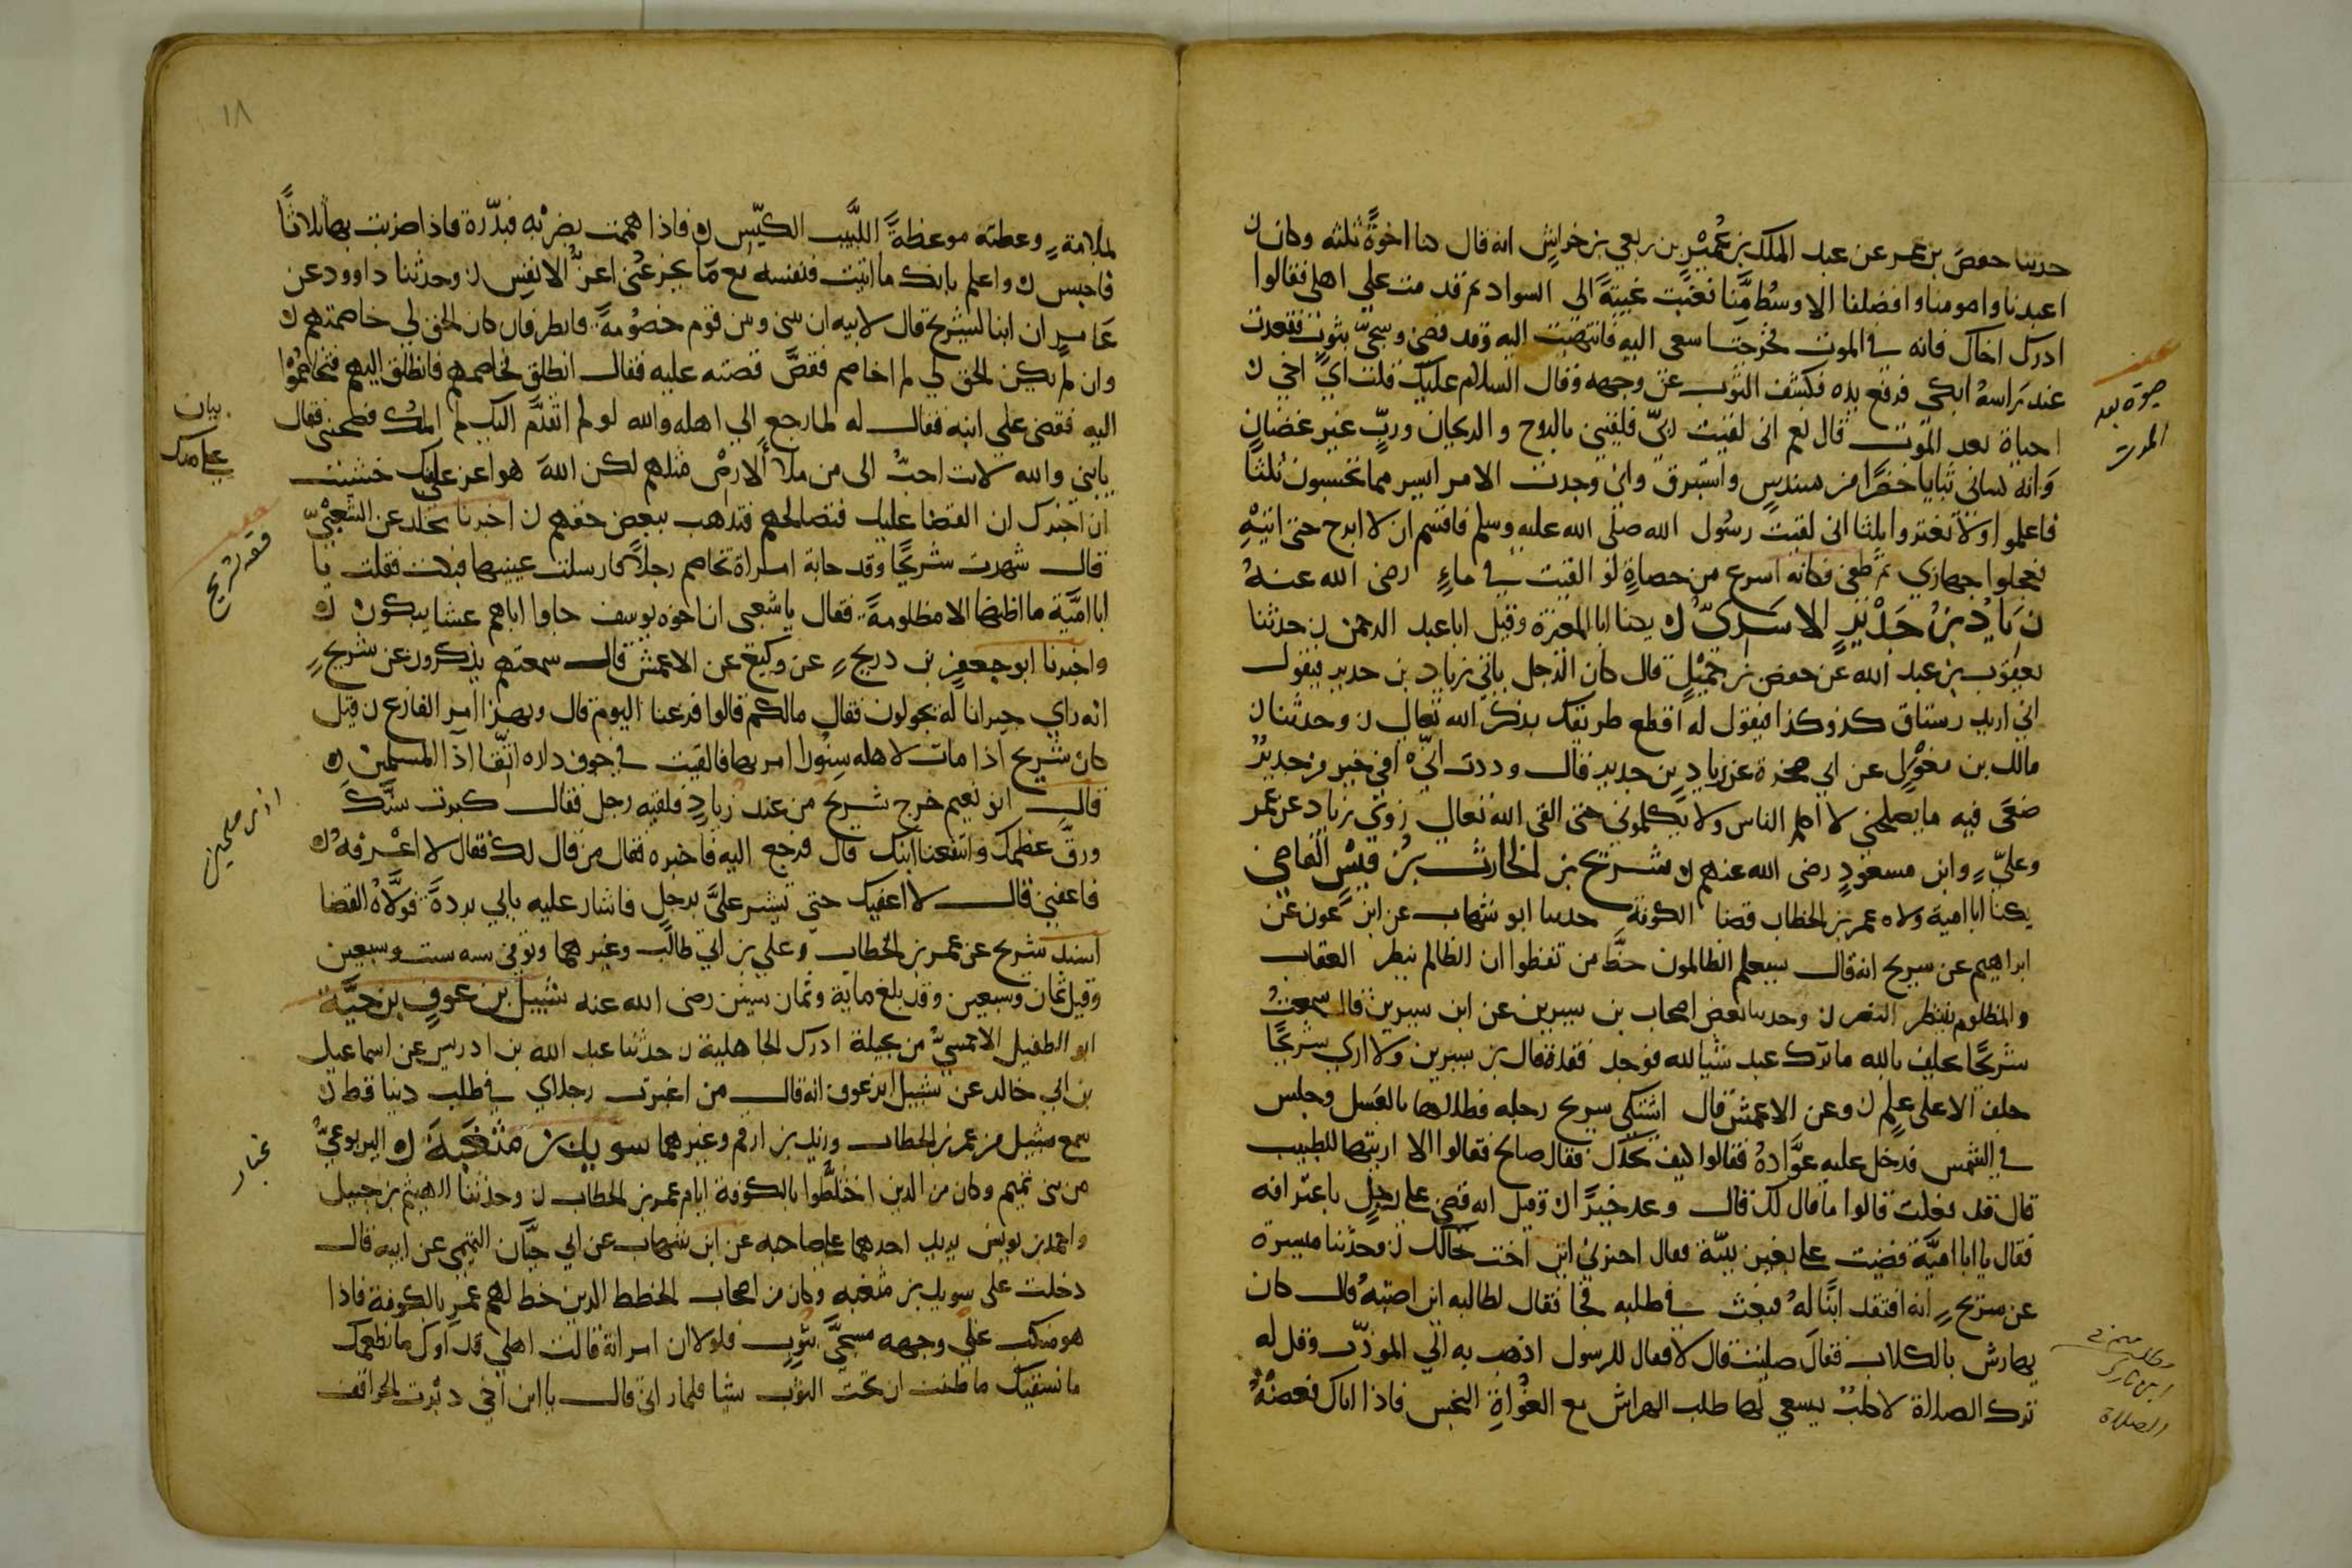 حدثنا حفص بن عمر عن عبد الملك بن عُمَيْرٍ بن ربعي بن خراشٍ انه قال كنا اخوةً ثلثه وكان ن
اعبدنا واصومنا وافضلنا الاوسُط مِنَّا فغبت غيبتةً الى السواد ثم قدمت علي اهلي فقالوا
ادرك اخاك فانه في الموت فخرجتُ اسعى اليه فانتهيت اليه وقد قضى وسُجيّ بثوبٍ فقعدت
عند رَاسهُ ابكي فرفع يده فكشف الثوب عن وجهه وقال السلام عليك قلت ايْ اخي ن
احياة بعد الموت قال نعم اني لقيت ربيّ فلقيني بالروح والريحان وربٍّ غير غضبانٍ
وَانه كساني ثيابا خضرًا من سندسٍ واستبرق واني وجدت الامر ايسر مما تحسبون ثلثا
فاعلموا ولا تغتروا ثلثا اني لقيت رسُول الله صلى الله عليه وسلم فاقسم ان لا ابرح حتى اتيْهِ
فعجلوا جهازي ثم طفى فكانه اسرع من حصاةٍ لو القيت في ماءٍ رضى الله عنهُ
زيَادُ بنُ حُدَيْرٍ الاسَدىّ ن يكنا ابا المغيرة وقيل ابا عبد الرحمن ن حدثنا
يعقوب بن عبد الله عن حفص بن حُمَيْلٍ قال كان الرجل ياتي زياد بن حدير فيقول
اني اريد رستاق كذ وكذا فيقول له اقطع طريقك بذكر الله تعالى ن وحدثنا ن
مالك بن مغْوَلٍ عن ابي صخرة عن زيادِ بن حدير قال وددت انيّ في خير من حديد
معي فيه ما يصلحني لا اكلم الناس ولا يكلموني حتى القى الله تعالى روى زياد عن عمر
وعليٍّ وابن مسعودٍ رضى الله عنهم ن شريح بن الحارث بنُ قيْسٍ القاضي
يكنا ابا امية ولاه عمر بن الخطاب قضا الكوفة حدثنا ابو شهاب عن ابن عون عن
ابراهيم عن شريح انه قال سيعلم الظالمون حظَّ من تنقظوا ان الظالم ينتظر العقاب
والمظلوم ينتظر النصر ن وحدثنا بعض اصحاب بن سيرين عن ابن سيرين قال سمعتُ
شريحًا يحلف بالله ما ترك عبد شيا لله فوجد فقده قال بن سيرين ولا ارى شريحًا
حلف الا على علم ن وعن الاعمش قال اشتكى شريح رجله فطلاها بالعَسَل وجلس
في الشمس فدخل عليه عوَّادهُ فقالوا كيف تجدُك فقال صالح فقالوا الا اريتها للطبيب
قال قد فعلت قالوا ما قال لك قال وعد خيرًا ن وقيل انه قضى على رجلٍ باعترافه
فقال يا ابا اميَّة قضيت على بغير بيّنة فقال اخبرني ابن اخت خالك ن وحدثنا ميسرة
عن شريح انه افتقد ابنًا لهُ فبعث في طلبه فجا فقال لطالبه اين اصبتهُ قال كان
يهارش بالكلاب فقال صليت قال لا فقال للرسول اذهب به الى المودّب وقل له
ترك الصلاة لاكلبٌ يسعى لها طلب الهراش مع الغُوَاةِ النجس فاذا اتاك فعضهُ
حيوة بعد
الموت
مطلب
ابن تارك
الصلاة
١٨
بملامةٍ وعظته موعظةً اللَّبيب الكيّس ن فاذا هممت بضرْبه فبدّرة فاذا ضربت بها ثلاثًا
فاحبس ن واعلم بانك ما اتيت فنفسه مع مَا يجزعُني اعزُّ الانفس ن وحدثنا داوود عن
عَامرٍ ان ابنا لشريح قال لابيه ان بيني وبين قوم خصُومةً فانظر فان كان الحق لي خاصمتهم ن
وان لم يكن الحق لي لم اخاصم فقصَّ قصته عليه فقال انطلق فخاصمهم فانطلق اليهم فتخاصموْا
اليه فقضى على ابنه فقال له لما رجع الى اهله والله لو لم اتقدَّم اليك لم المْك فضحتني فقال
يا بني والله لانت احبُّ الى من ملا الارضْ مثلهم لكن اللهَ هو اعز علي منك خشيت
ان اخبرك ان القضا عليك فتصالحهم فتذهب ببعض حقهم ن اخبرنا مجالد عن الشعبيّ
قال شهدت شريحًا وقد جاته امراة تخاصم رجلاً فارسلت عينيها فبكت فقلت يا
ابا اميَّة ما اظنها الا مظلومةً فقال يا شعبى ان اخوة يوسف جاوا اباهم عشا يبكون ن
واخبرنا ابو جعفرٍ بن دريحٍ عن وكيع عن الاعمش قال سمعتهم يذكرون عن شريح
انه راي جيرانا له يجولون فقال مالكم قالوا فرغنا اليوم قال وبهذا امر الفارغ ن قيل
كان شريح اذا مات لاهله سنّور امر بها فالقيت في جوف داره اتّقا اذا المسلمين ن
قال ابو نعيم خرج شريح من عند زيادٍ فلقيه رجل فقال كبرت سنّك
ورقَّ عظمك وانتفعنا ابنك قال فرجع اليه فاخبره فقال من قال لك فقال لا اعْرفهُ ن
فاعفني قال لا اعفيك حتى تشير علىَّ برجلٍ فاشار عليه بابي بردةَ فولَّاهُ القضا
اسند شريح عن عمر بن الخطاب وعلي بن ابي طالب وغيرهما وتوفى سنه ست وسبعين
وقيل ثمان وسبعين وقد بلغ ماية وثمان سنين رضى الله عنه شبيل بن عوفٍ بن حيَّة
ابو الطفيل الاحمسيُّ من بجيلة ادرك الجاهلية ن حدثنا عبد الله بن ادريس عن اسماعيل
بن ابي خالد عن شبيل ابن عوف انه قال من اغبرت رجلاي في طلب دنيا قط ن
سمع شبيل من عمر بن الخطاب وزيد بن ارقم وغيرهما سويد بن مثعبَة ن اليربوعيُّ
من بني تميم وكان من الذين اختلطُّوا بالكوفة ايام عمر بن الخطاب ن وحدثنا الهيثم بن جميل
واحمد بن يونس يزيد احدهما على صاحبه عن ابن شهاب عن ابي حيَّان التيمي عن ابيه قال
دخلت على سويد بن مثعبه وكان من اصحاب الخطط الذين خط لهم عمر بالكوفة فاذا
هو منكب على وجهه مسجَّي بثوبٍ فلولا ان امراته قالت اهلي قدآوك ما نطعمك
ما نسقيك ما ظننت ان تحت الثوب شيا فلما راني قال يا ابن اخي دبُرت الحراقف
بيان
فقه شريح
غبار